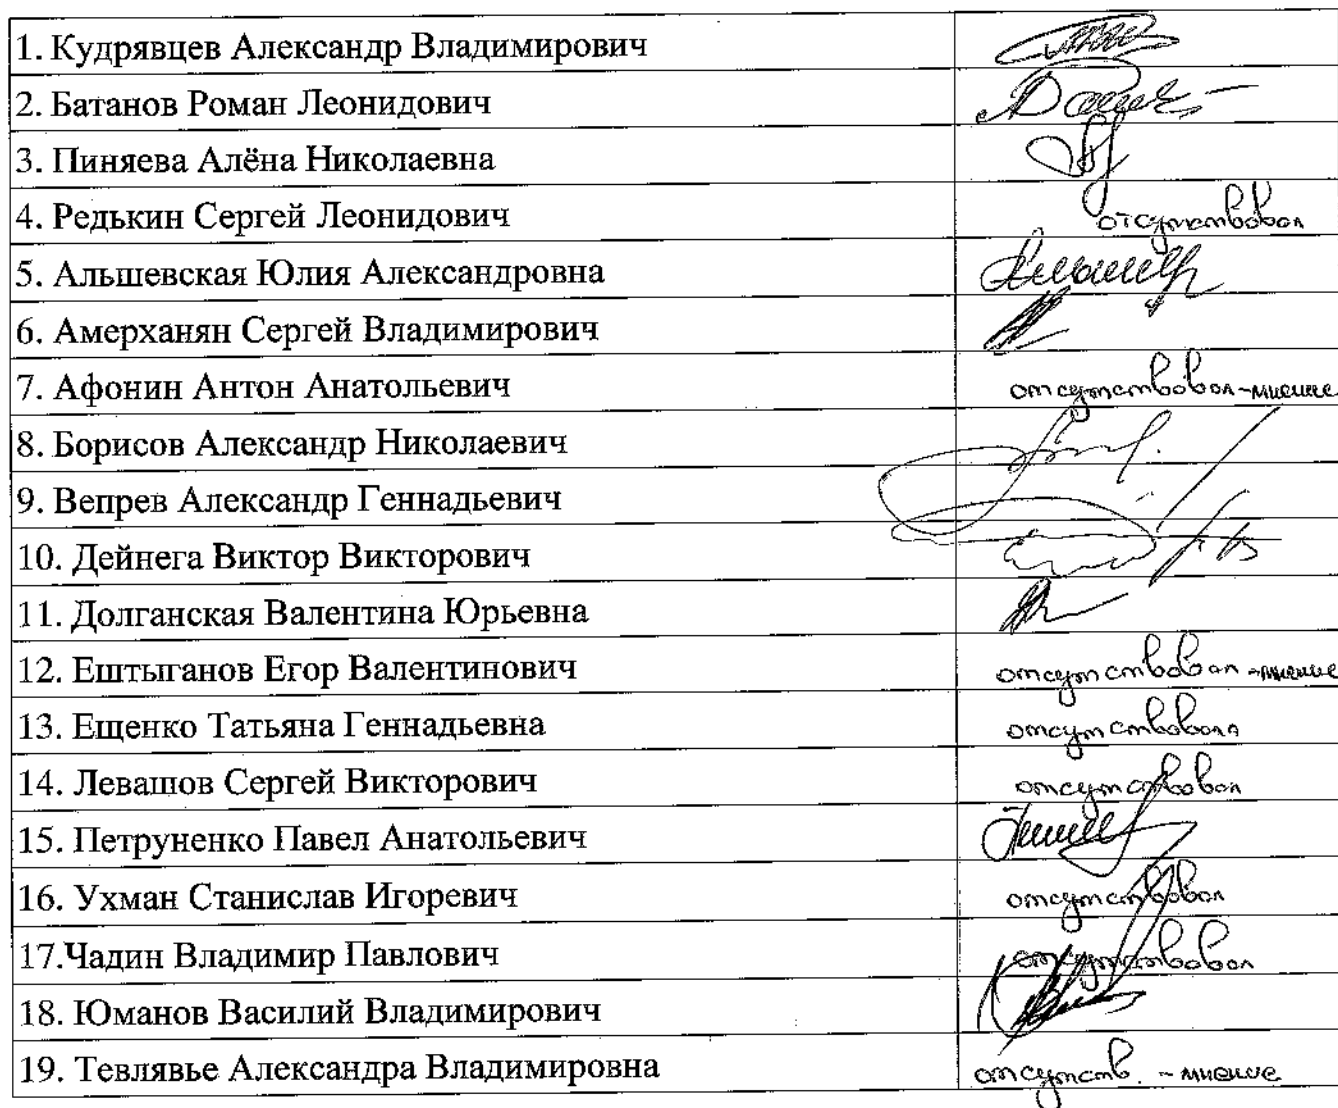 1. Кудрявцев Александр Владимирович
2. Батанов Роман Леонидович
3. Пиняева Алёна Николаевна
4. Редькин Сергей Леонидович отсутствовал
5. Альшевская Юлия Александровна
6. Амерханян Сергей Владимирович
7. Афонин Антон Анатольевич отсутствовал-мнение
8. Борисов Александр Николаевич
9. Вепрев Александр Геннадьевич
10. Дейнега Виктор Викторович
11. Долганская Валентина Юрьевна
12. Ештыганов Егор Валентинович отсутствовал-мнение
13. Ещенко Татьяна Геннадьевна отсутствовала
14. Левашов Сергей Викторович отсутствовал
15. Петруненко Павел Анатольевич
16. Ухман Станислав Игоревич отсутствовал
17.Чадин Владимир Павлович отсутствовал
18. Юманов Василий Владимирович
19. Тевлявье Александра Владимировна отсутств. - мнение